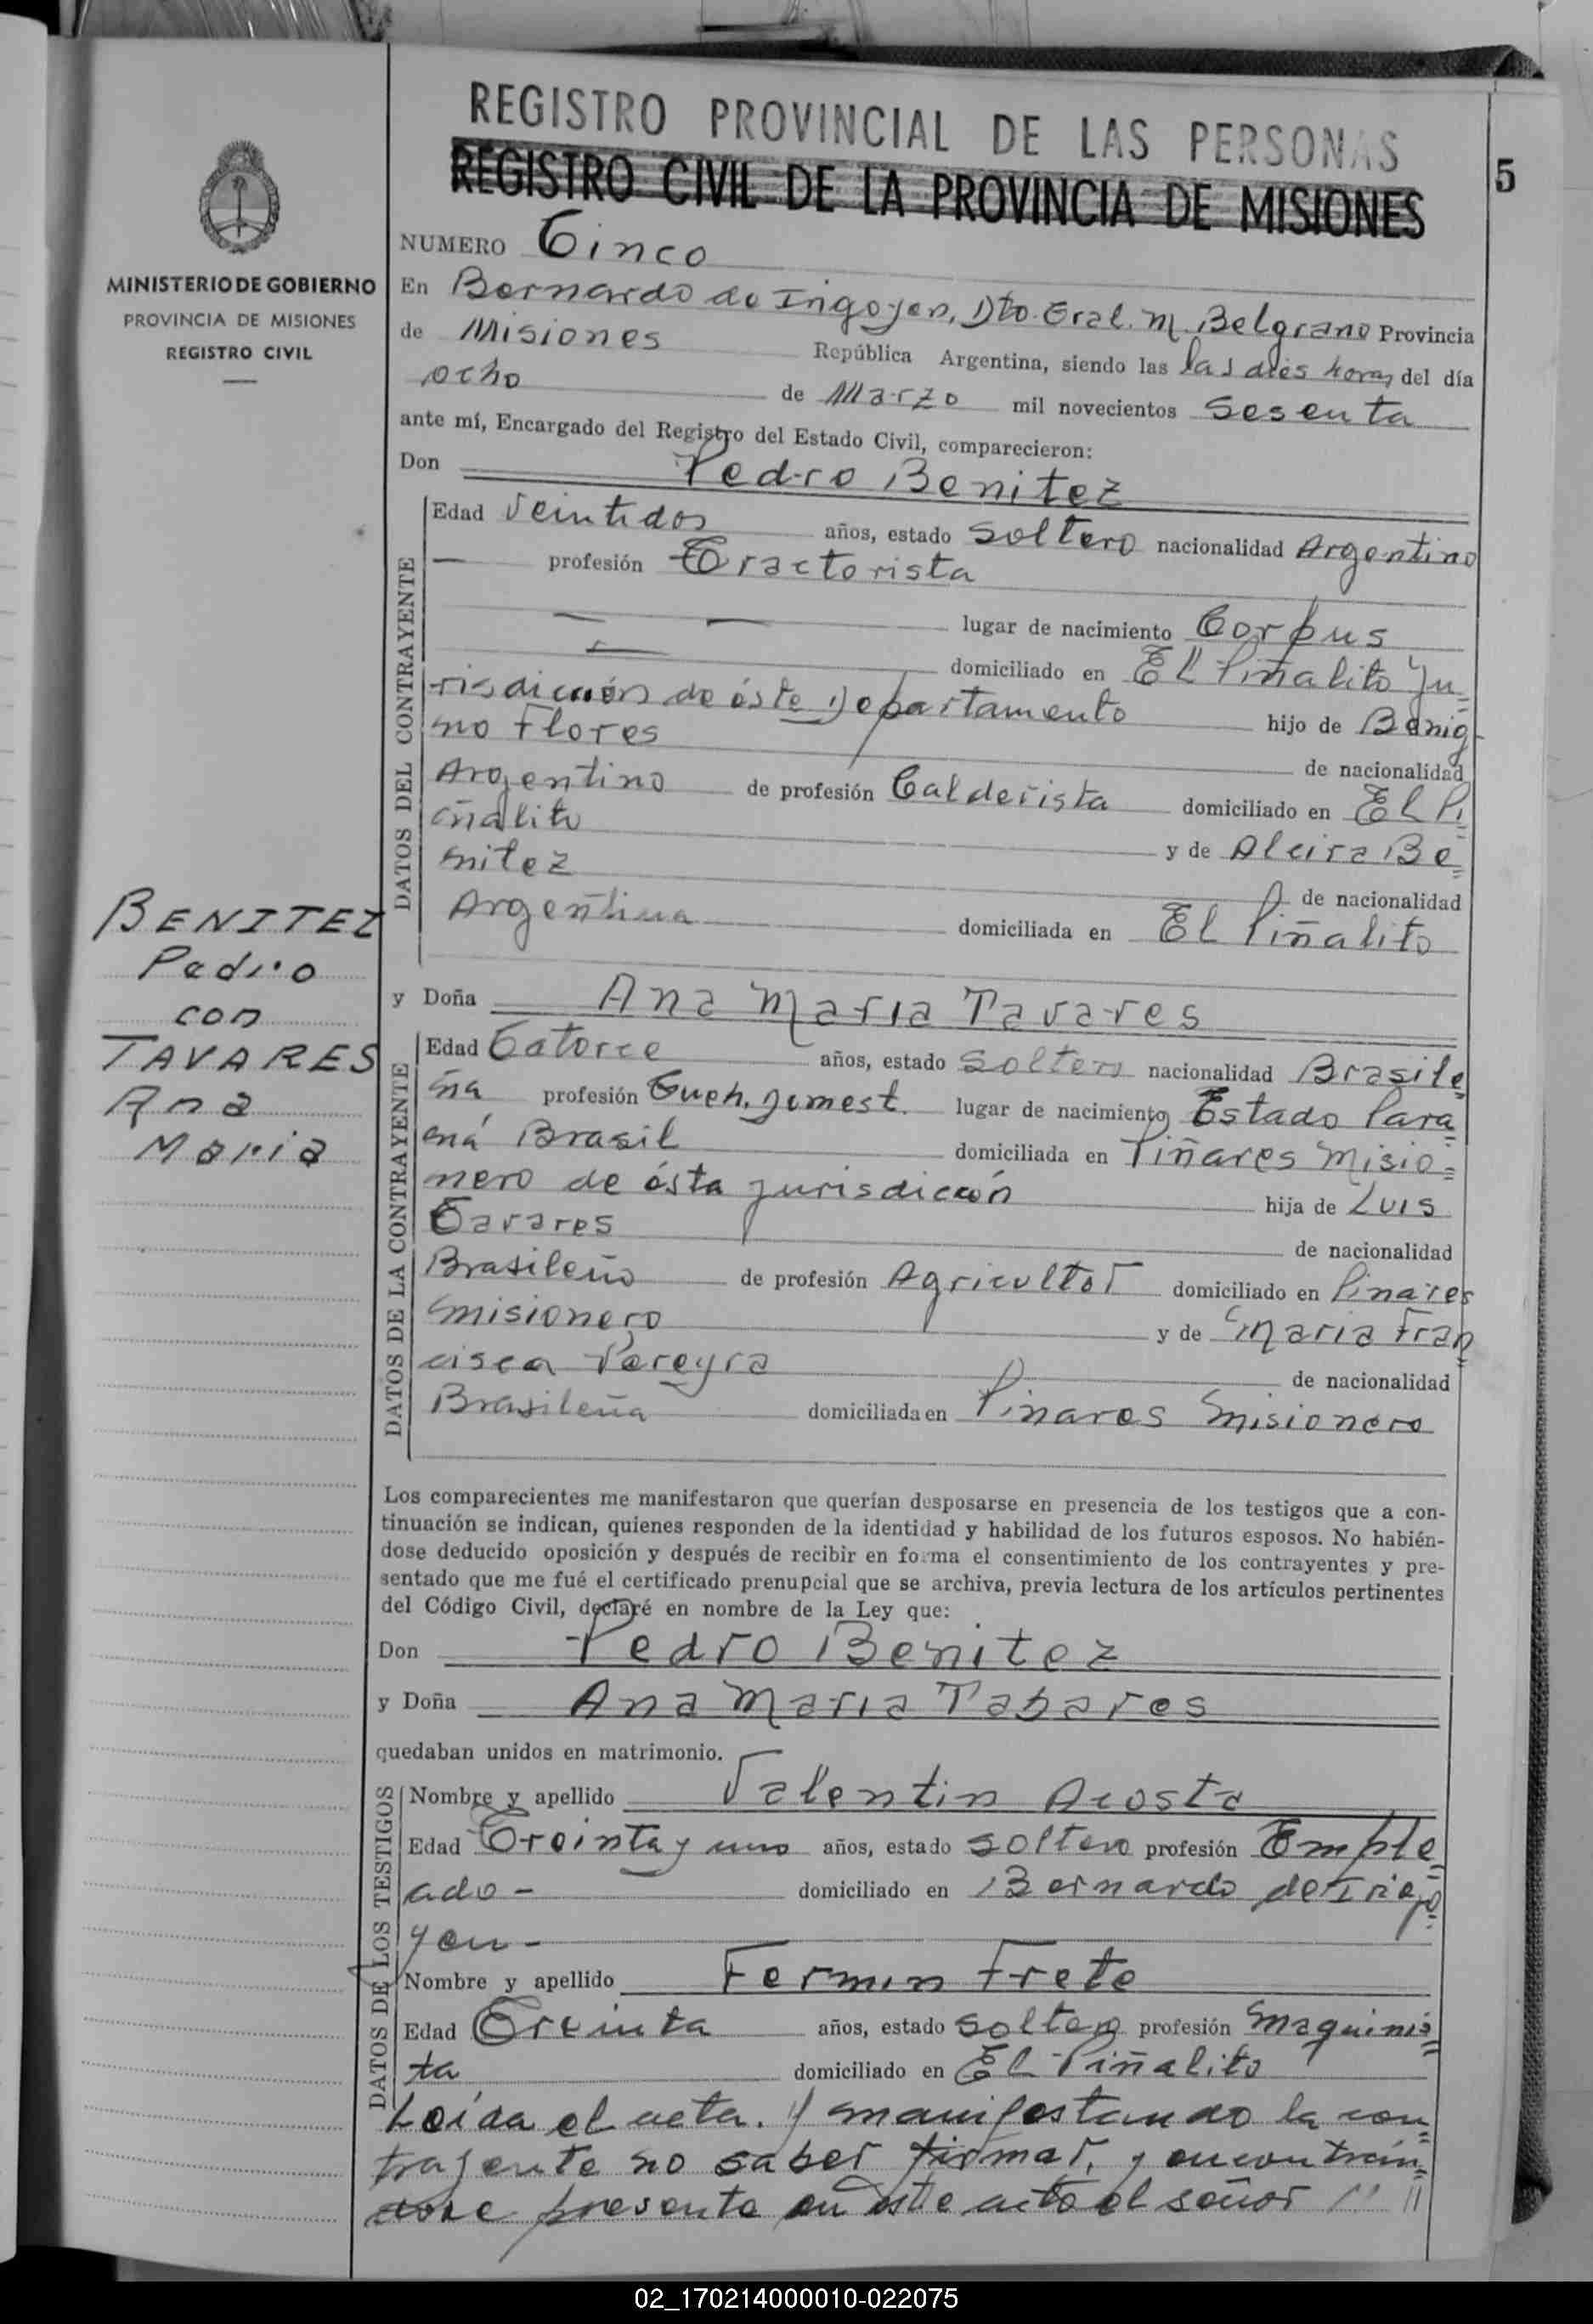 REGISTRO PROVINCIAL DE LAS PERSONAS
REGISTRO CIVIL DE LA PROVINCIA DE MISIONES
5
MINISTERIO DE GOBIERNO
PROVINCIA DE MISIONES
REGISTRO CIVIL
NUMERO Cinco
En Bernardo de Irigoyen, Dto. Gral. M. Belgrano Provincia
de Misiones República Argentina, siendo las las dies horas del día
ocho de Marzo mil novecientos Sesenta
ante mí, Encargado del Registro del Estado Civil, comparecieron:
Don Pedro Benitez
DATOS DEL CONTRAYENTE
Edad Veintidos años, estado soltero nacionalidad Argentino
— profesión Tractorista
lugar de nacimiento Corpus
domiciliado en El Piñalito Ju=
risdicción de éste Departamento hijo de Benig-
no Flores de nacionalidad
Argentino de profesión Calderista domiciliado en El Pi=
ñalito y de Alcira Be=
nitez de nacionalidad
Argentina domiciliada en El Piñalito
BENITEZ
Pedro
con
TAVARES
Ana
Maria
y Doña Ana Maria Tavares
DATOS DE LA CONTRAYENTE
Edad Catorce años, estado Soltera nacionalidad Brasile=
ña profesión Queh. Domest. lugar de nacimiento Estado Para=
ná Brasil domiciliada en Piñares Misio=
nero de ésta jurisdicción hija de Luis
Tavares de nacionalidad
Brasileño de profesión Agricultor domiciliado en Pinares
misionero y de Maria Fran=
cisca Pereyra de nacionalidad
Brasileña domiciliada en Pinares Misionero
Los comparecientes me manifestaron que querían desposarse en presencia de los testigos que a con-
tinuación se indican, quienes responden de la identidad y habilidad de los futuros esposos. No habién-
dose deducido oposición y después de recibir en forma el consentimiento de los contrayentes y pre-
sentado que me fué el certificado prenupcial que se archiva, previa lectura de los artículos pertinentes
del Código Civil, declaré en nombre de la Ley que:
Don Pedro Benitez
y Doña Ana Maria Tabares
quedaban unidos en matrimonio.
DATOS DE LOS TESTIGOS
Nombre y apellido Valentin Acosta
Edad Treinta y uno años, estado soltero profesión Emple=
ado - domiciliado en Bernardo de Irigo=
yen -
Nombre y apellido Fermin Frete
Edad Treinta años, estado soltero profesión Maquinis=
ta domiciliado en El Piñalito
Leída el acta. Y manifestando la con=
trayente no saber firmar, y encontrán=
dose presente en este acto el señor
02_170214000010-022075